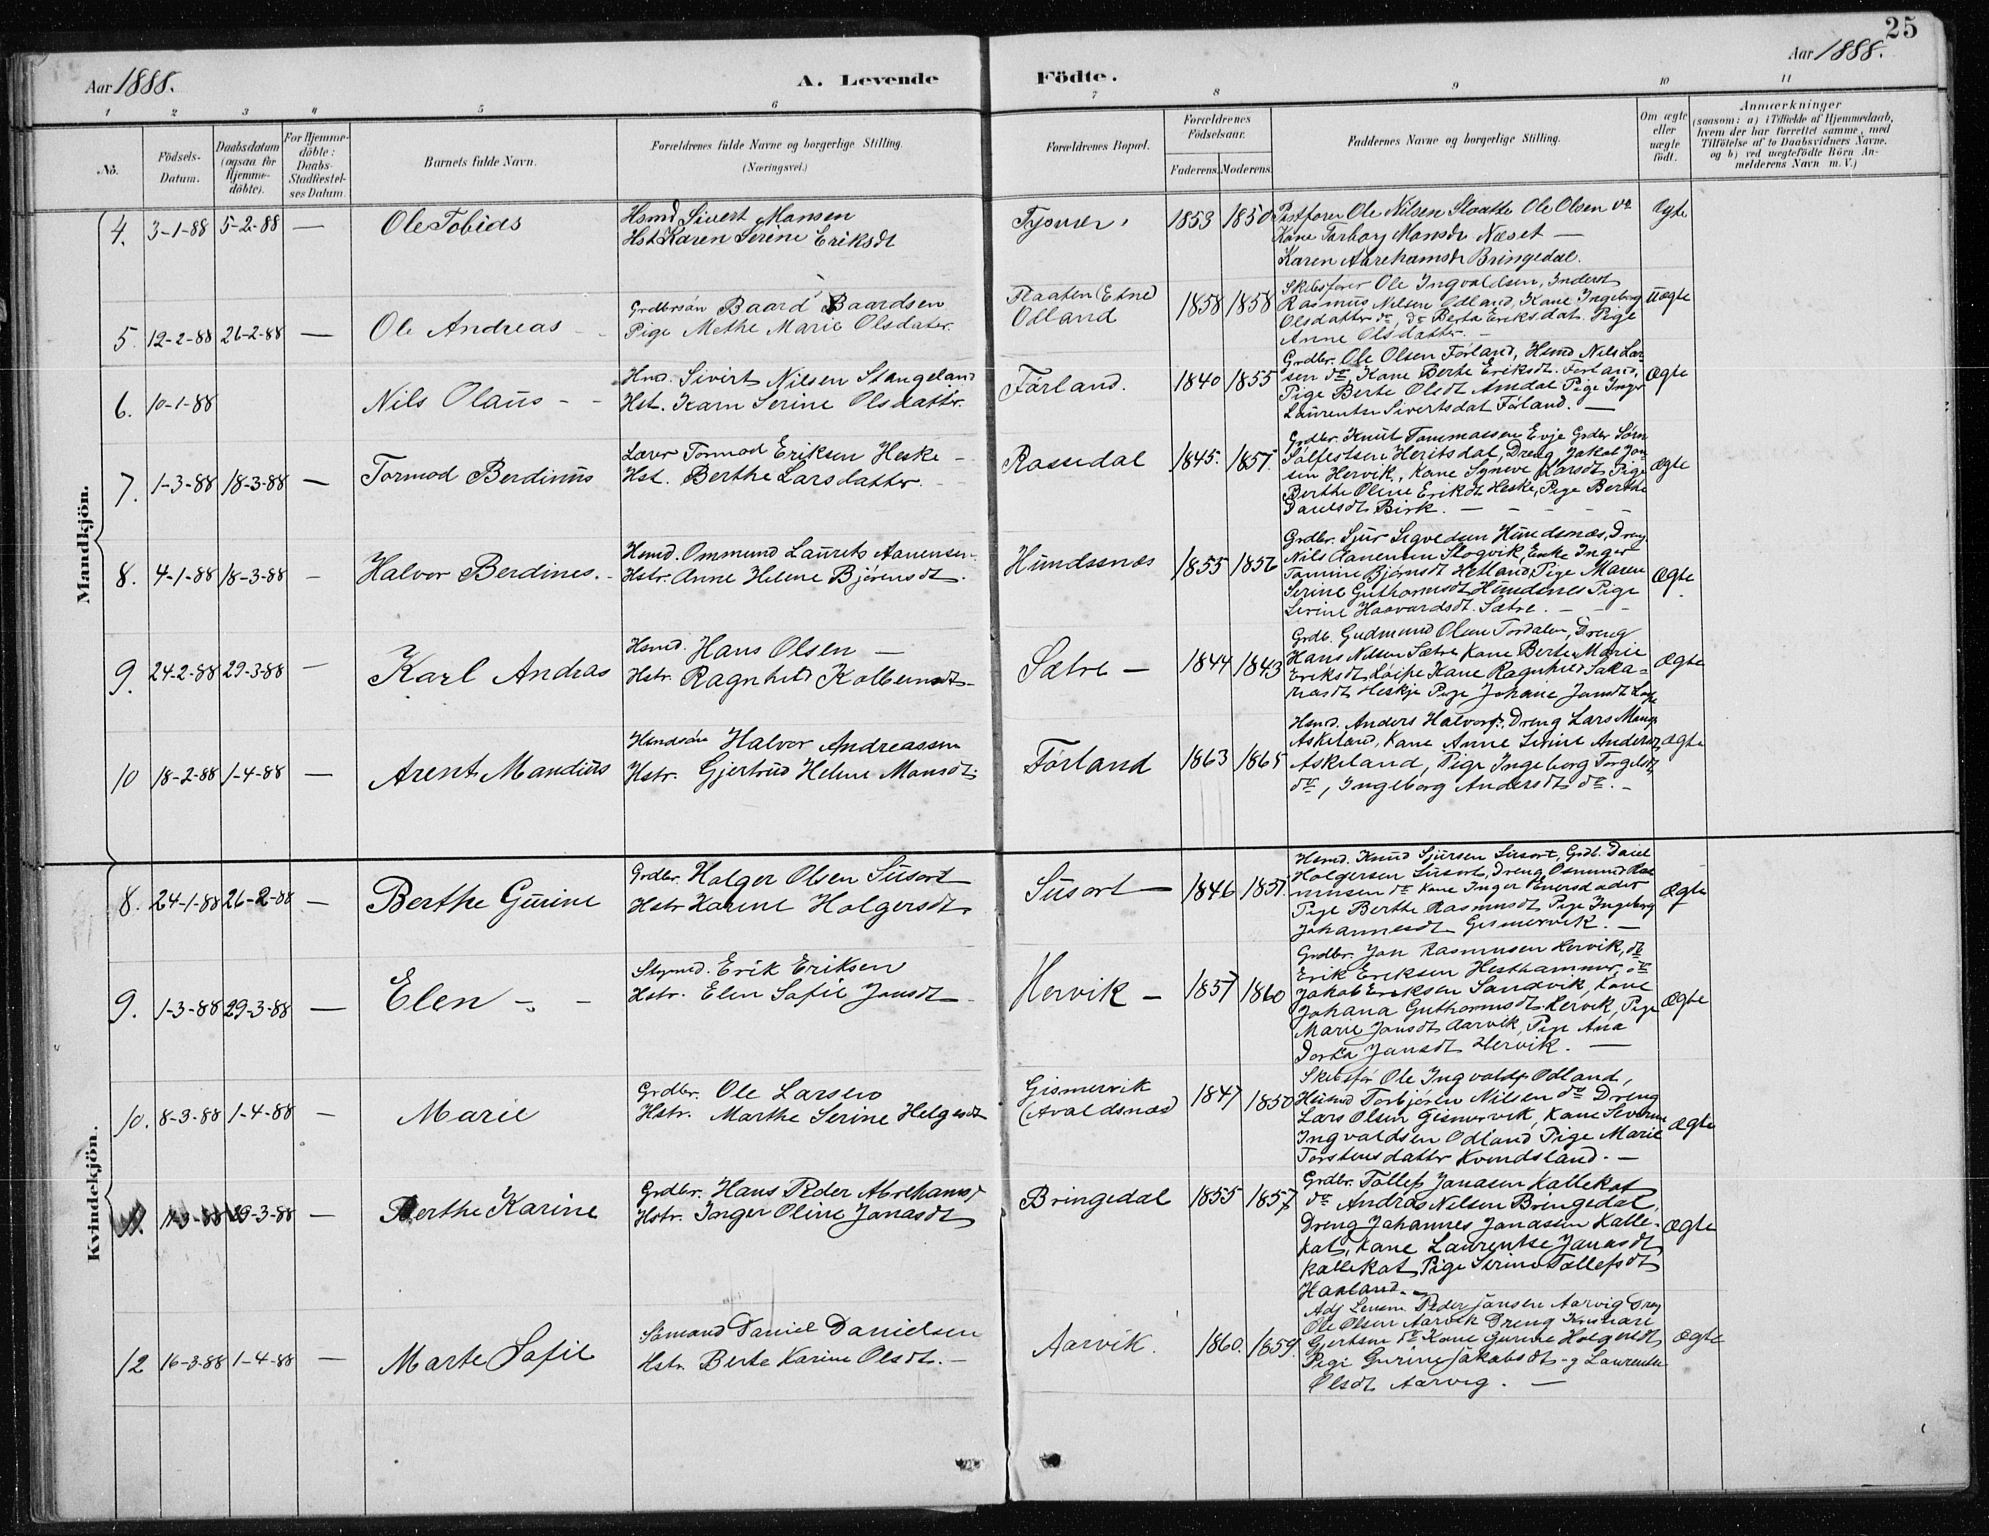 25
Aar 1888.
A. Levende Födte.
Aar 1888.
1 2 3 4 5 6 7 8 9 10 11
No.
Födsels-Datum.
Daabsdatum (ogsaa for Hjemme-döbte).
For Hjemme-döbte: Daabs-Stadfæstel-ses Datum.
Barnets fulde Navn.
Forældrenes fulde Navne og borgerlige Stilling.
(Næringsvei.)
Forældrenes Bopæl.
Forældrenes Födselsaar.
Faderens. Moderens.
Faddernes Navne og borgerlige Stilling.
Om ægte eller uægte födt.
Anmærkninger
(saasom: a) i Tilfælde af Hjemmedaab,
hvem der har forrettet samme, med
Tilföielse af to Daabsvidners Navne.
og b) ved uægtefödte Börn An-
melderens Navn m. V.)
Mandkjön.
4. 3-1-88 5-2-88 — Ole Tobias
Hsmd Sivert Monsen
Hst. Karen Serine Eriksdt
Tysvær. 1853 1850
Ole Nilsen Slaatte Ole Olsen do
Kone Torborg Monsdt Næset —
Karen Abrehamsdt Bringedal.
Ægte
5. 12-2-88 26-2-88 — Ole Andreas
Grdbrsön Baard Baardsen
Pige Methe Marie Olsdater.
Flaaten (Etne)
Odland
1858 1858
Skibsförer Ole Ingvaldsen, Inderst
Rasmus Nilsen Odland, Kone Ingeborg
Olsdatter do, do Berta Eriksdat. Pige
Anne Olsdatter. —
Uægte
6. 10-1-88 Nils Olaus - -
Hmd. Sivert Nilsen Stangeland
Hst. Karn Serine Olsdatter.
Förland. 1840 1855
Grdbr. Ole Olsen Förland, Hsmd Nils Lar-
sen do Kone Berte Eriksdt. Förland,
Pige Berte Olsdt Amdal Pige Inger
Laurentse Sivertsdat Förland. —
Ægte
7. 1-3-88 18-3-88 — Tormod Berdinus
Lærer Tormod Eriksen Heske —
Hst. Berthe Larsdatter. -
Rossedal 1845. 1857.
Grdbr. Knut Tommassen Evje Grdbr Sörn
Solfestsen Heritsdal, Dreng Jakob Jon-
sen Hervik, Kone Syneve Larsdt, Pige
Berthe Oline Eriksdt Heske, Pige Berthe
Danelsdt Birk. — - - -
Ægte
8. 4-1-88 18-3-88 - Halvor Berdines. -
Hsmd. Ommund Laurits Aanensen
Hstr. Anne Helene Björnsdt.
Hundsnæs 1855 1856
Grdbr. Sjur Sigvedsen Hundsnæs, Dreng
Nils Aanensen Slogvik, Enke Inger
Tomine Björnsdt Hetland, Pige Maren
Serine Guthormsdt Hundsnes Pige
Serine Haavardsdt. Sætre. - - -
Ægte
9. 24-2-88 29-3-88 — Karl Andras
Hsmd. Hans Olsen —
Hstr. Ragnhild Kolbensdt -
Sætre — 1844 1843
Grdb. Gudmund Olsen Tordalen, Dreng
Hans Nilsen Sætre Kone Berte Marie
Eriksdt Löipe Kone Ragnhild Saka-
riasdt Heskje Pige Johane Jonsdt
Ægte
10 18-2-88 1-4-88 — Arent Mandius
Hmdsön Halvor Andreassen
Hstr. Gjertrud Helene Monsdt.
Förland 1863 1865
Hsmd. Anders Halvors., Dreng Lars
Askeland, Kone Anne Serine Andersdt
Askeland, Pige Ingeborg Torgelsdt,
do, Ingeborg Andersdt do. -
Ægte
Kvindekjön.
8. 24-1-88 26-2-88 — Berthe Gurine
Grdbr. Holger Olsen Susort
Hstr Karine Holgersdt.
Susort — 1846 1857.
Hsmd. Knud Sjursen Susort, Grdb. Daniel
Holgersen Susort, Dreng Osmund Ras-
mussen do Kone Inger Enersdader
Pige Berthe Rasmusdt Pige Ingeborg
Johannesdt Gismervik. —
Ægte
9. 1-3-88 29-3-88 — Elen - -
Erik Eriksen
Hstr. Elen Sofie Jonsdt -
Hervik — 1857 1860
Grdbr. Jon Rasmusen Hervik, do
Erik Eriksen Hesthammer, do
Jakob Eriksen Sandvik, Kone
Johana Guthormsdt Hervik, Pige
Marie Jonsdt Aarvik, Pige Ana
Dortea Jonsdt Hervik. —
Ægte
10. 8-3-88 1-4-88 — Marie
Grdbr. Ole Larsen
Hstr. Marthe Serine Helgesdt
Gismervik
(Avaldsnæs)
1847 1850
Skibsför Ole Ingvalds. Odland,
Husmd Torbjören Nilsen do Dreng
Lars Olsen Gismervik, Kone Severine
Ingvaldsen Odland Pige Marie
Torstensdatter Kvindsland. —
Ægte
11. 29-3-88 — Berthe Karine
Grdbr. Hans Peder Abrehams.
Hstr. Inger Oline Jonasdt
Bringedal 1855 1857
Grdbr. Tollef Jonasen Kallekot
do Andras Nilsen Bringedal,
Dreng Johannes Jonassen Kalle-
kot, Kone Laurentse Jonasdt
Kallekot Pige Serine Tollefsdt
Haaland. -
Ægte
12 16-3-88 1-4-88 — Marte Sofie
Sömand Daniel Danielsen
Hstr. Berte Karine Olsdt. —
Aarvik. 1860. 1859.
Adj Lensm Peder Jansen Aarvig Dreng
Ole Olsen Aarvik Dreng Kristian
Gjertsen do Kone Gurine Holgersdt
Pige Gurine Jakobsdt og Laurentse
Olsdt Aarvig. —
Ægte